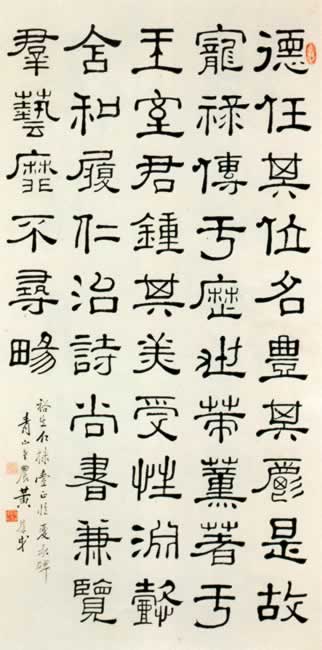 德任其位名豊其爵是故
寵祿傳于歷世策薰著于
王室君鍾其美受性淵懿
含和履仁治詩尚書兼覽
羣藝靡不尋暢
裕生仁棣臺正臨夏承碑
青山老農黃葆戉